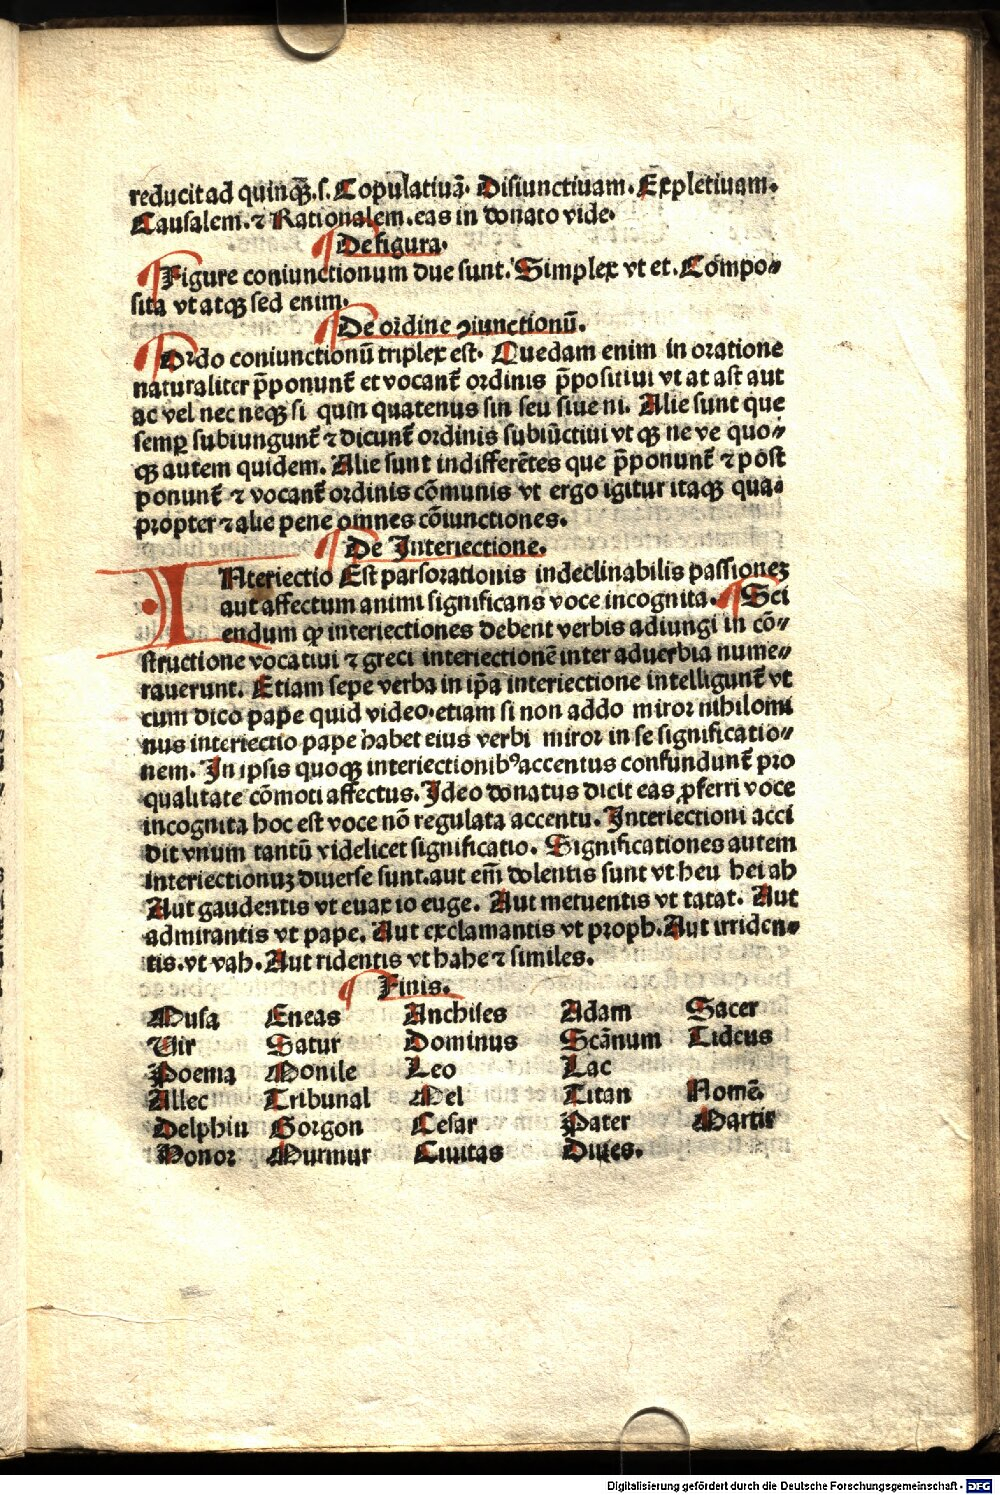 reducit ad quinqꝫ .s. Copulatiuā. Disiunctiuam. Expletiuam.
Causalem. ⁊ Rationalem. eas in donato vide.
De figura.
Figure coniunctionum due sunt. Simplex vt et. Compo⸗
sita vt atqꝫ sed enim.
De ordine ꝯiunctionū.
Ordo coniunctionū triplex est. Quedam enim in oratione
naturaliter p̄ponunt̄ et vocant̄ ordinis p̄positiui vt at ast aut
ac vel nec neqꝫ si quin quatenus sin seu siue ni. Alie sunt que
semꝑ subiungunt̄ ⁊ dicunt̄ ordinis subiūctiui vt qꝫ ne ve quo⸗
qꝫ autem quidem. Alie sunt indifferētes que p̄ponunt̄ ⁊ post
ponunt̄ ⁊ vocant̄ ordinis cōmunis vt ergo igitur itaqꝫ qua⸗
propter ⁊ alie pene omnes cōiunctiones.
De Interiectione.
INteriectio Est pars orationis indeclinabilis passionez
aut affectum animi significans voce incognita. Sci
endum ꝙ interiectiones debent verbis adiungi in cō⸗
structione vocatiui ⁊ greci interiectionē inter aduerbia nume⸗
rauerunt. Etiam sepe verba in ip̄a interiectione intelligunt̄ vt
cum dico pape quid video. etiam si non addo miror nihilomi
nus interiectio pape habet eius verbi miror in se significatio⸗
nem. In ipsis quoqꝫ interiectionibꝰ accentus confundunt̄ pro
qualitate cōmoti affectus. Ideo donatus dicit eas ꝓferri voce
incognita hoc est voce nō regulata accentu. Interiectioni acci
dit vnum tantū videlicet significatio. Significationes autem
interiectionuꝫ diuerse sunt. aut em̄ dolentis sunt vt heu hei ah
Aut gaudentis vt euax io euge. Aut metuentis vt tatat. Aut
admirantis vt pape. Aut exclamantis vt proph. Aut irriden⸗
tis. vt vah. Aut ridentis vt hahe ⁊ similes.
Finis.
Musa Eneas Anchises Adam Sacer
Vir Satur Dominus Scānum Tideus
Poema Monile Leo Lac
Allec Tribunal Mel Titan Nomē.
Delphin Gorgon Cesar Pater Martir
Honor Murmur Ciuitas Diues.
Digitalisierung gefördert durch die Deutsche Forschungsgemeinschaft - DFG